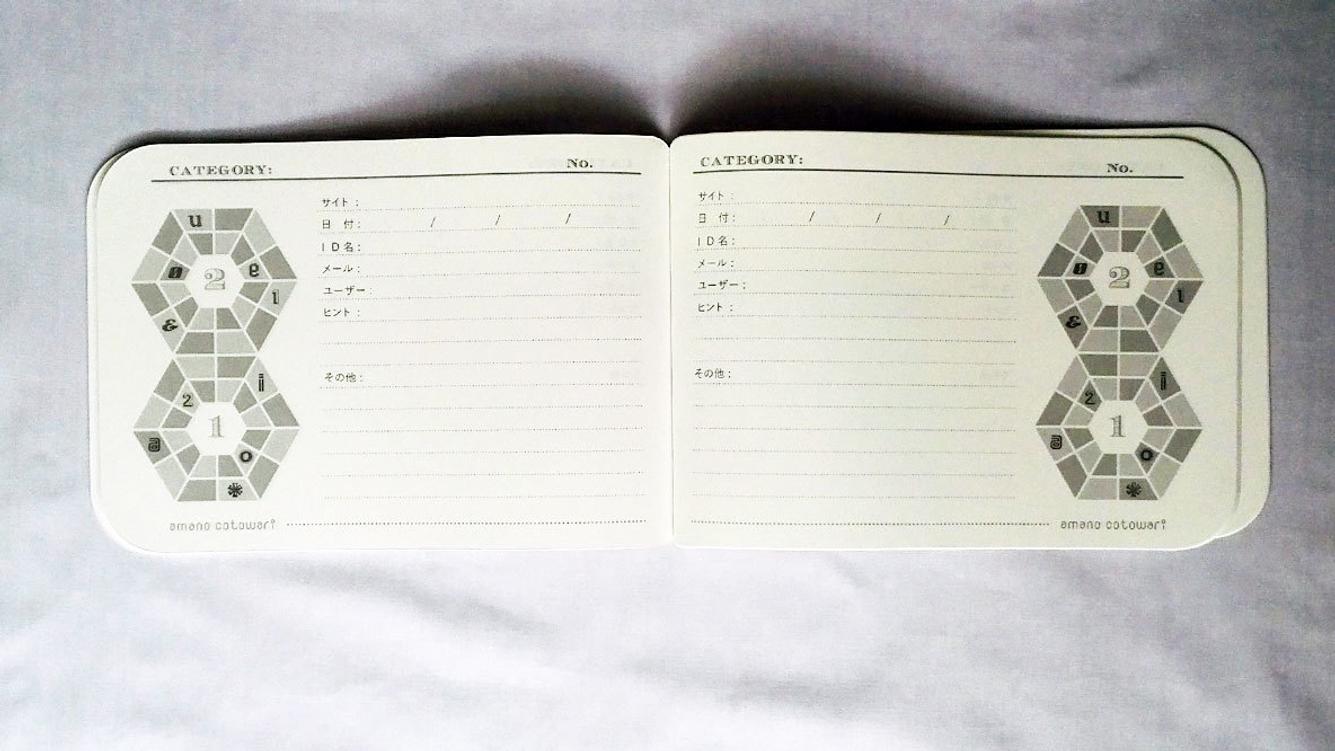 CATEGORY: No.
サイト:
日 付: / / /
ID名:
メール:
ユーザー:
ヒント:
その他:
u
2
e
1
&
i
2
1
@
o
*
amano cotowari
CATEGORY: No.
サイト:
日 付: / / /
ID名:
メール:
ユーザー:
ヒント:
その他:
u
2
e
1
&
i
2
1
@
o
*
amano cotowari